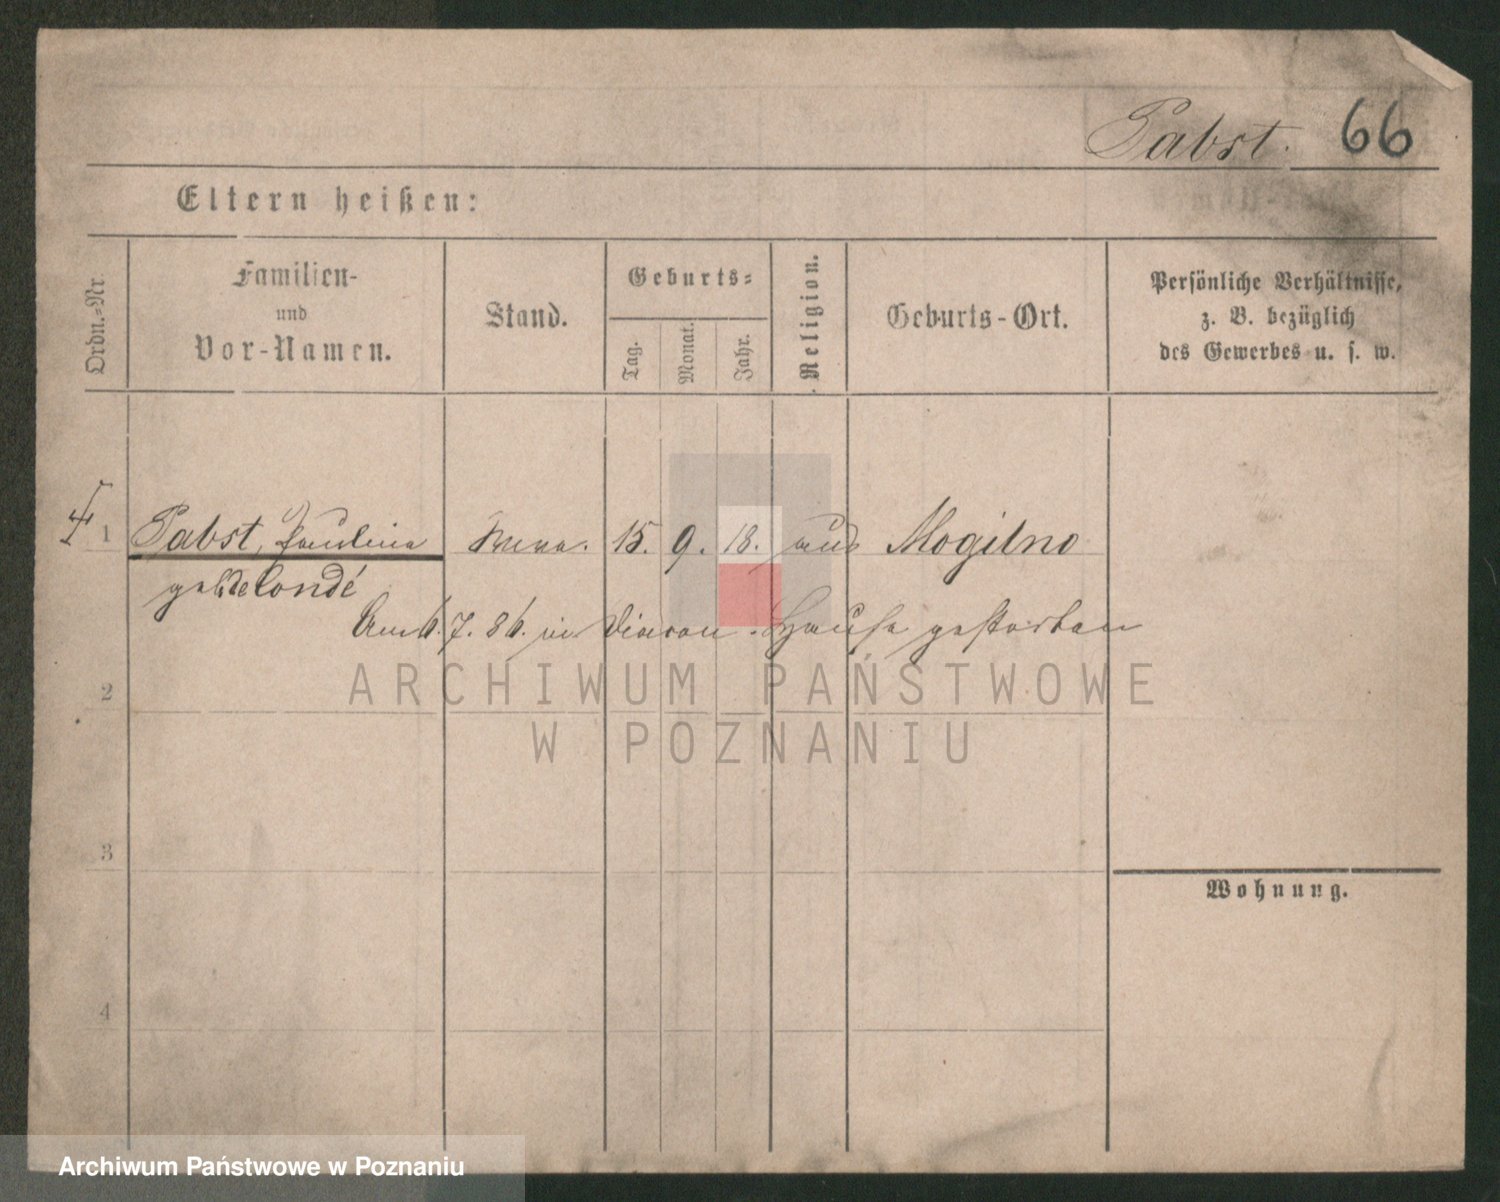 Pabst. 66
Eltern heißen:
Ordn.=Nr.
Familien-
und
Vor-Namen.
Stand.
Geburts=
Tag.
Monat.
Jahr.
Religion.
Geburts-Ort.
Persönliche Verhältnisse,
z. B. bezüglich
des Gewerbes u. s. w.
1 Pabst, Paulina Wwe. 15. 9. 18. Mogilno
geb. de Condé
Am 6. 7. 86. im Diacon. Hause gestorben
2
ARCHIWUM PAŃSTWOWE
W POZNANIU
3
Wohnung.
4
Archiwum Państwowe w Poznaniu